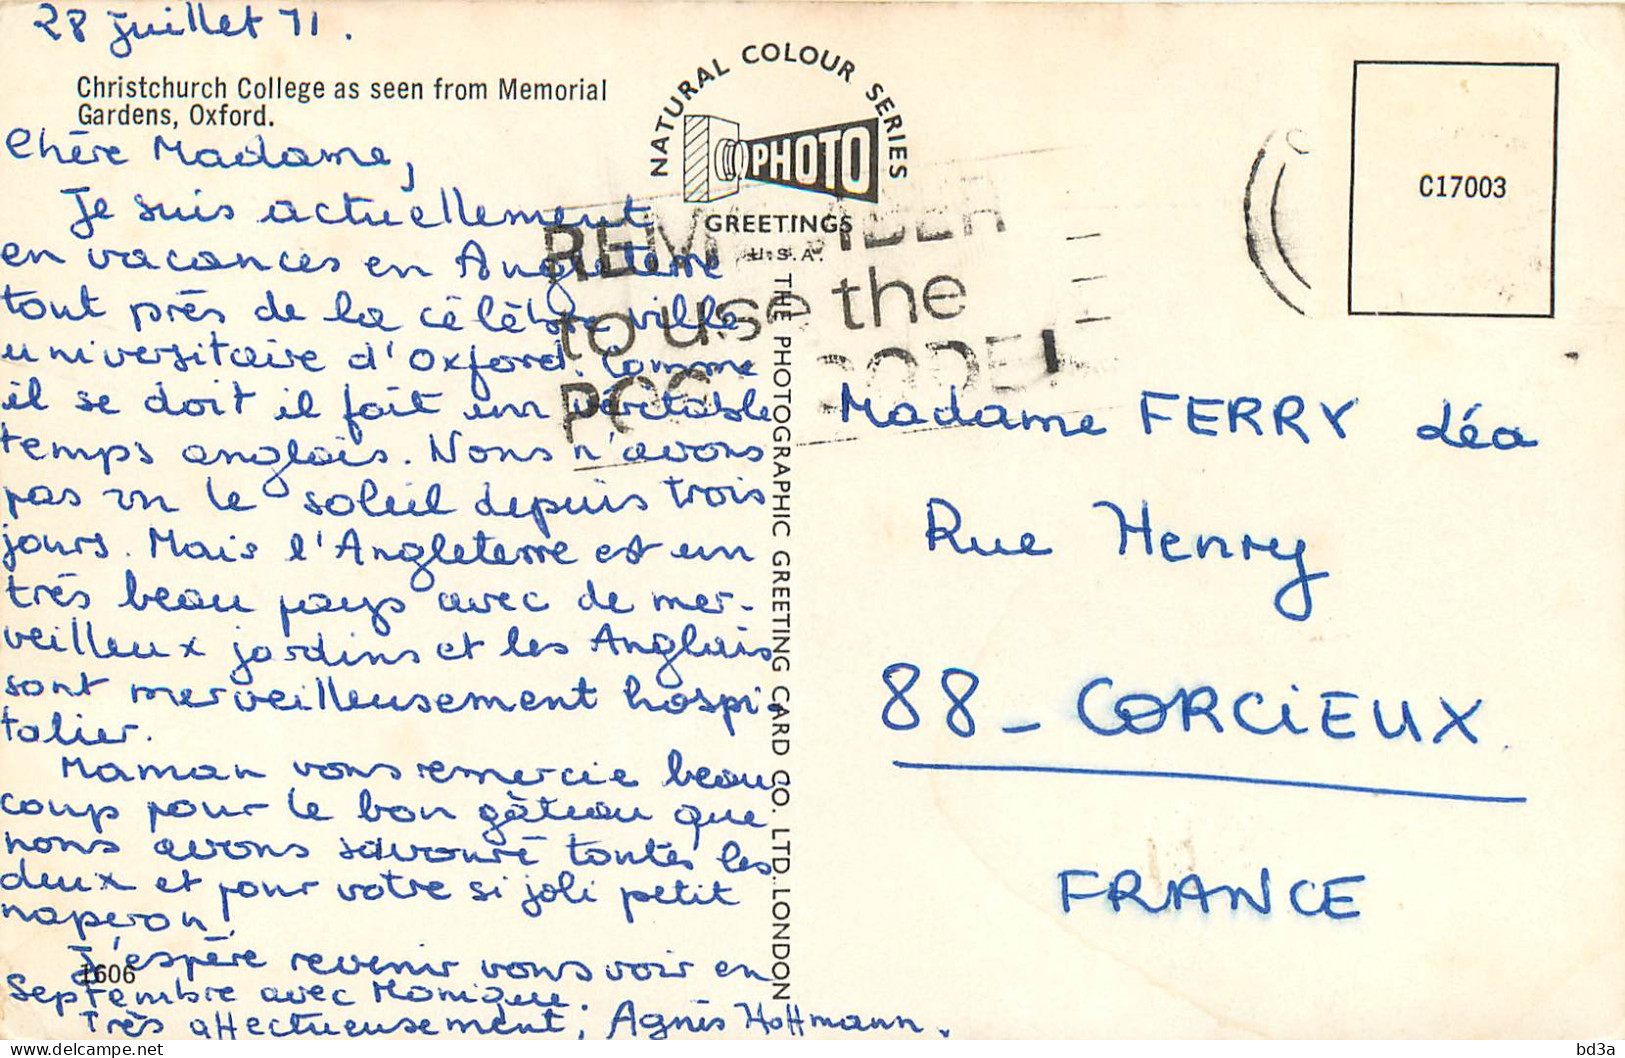 28 juillet 71.
Christchurch College as seen from Memorial
Gardens, Oxford.
Chère Madame,
Je suis actuellement
en vacances en Angleterre
tout près de la célèbre ville
universitaire d'Oxford. Comme
il se doit il fait un véritable
temps anglais. Nous n'avons
pas vu le soleil depuis trois
jours. Mais l'Angleterre est un
très beau pays avec de mer-
veilleux jardins et les Anglais
sont merveilleusement hospi-
talier.
Maman vous remercie beau
coup pour le bon gâteau que
nous avons savouré toutes les
deux et pour votre si joli petit
naperon!
J'espère revenir vous voir en
1606
Septembre avec Monique.
Très affectueusement, Agnès Hoffmann.
NATURAL COLOUR SERIES
PHOTO
GREETINGS
U.S.A.
THE PHOTOGRAPHIC GREETING CARD CO. LTD. LONDON
REMEMBER
to use the
POSTCODE!
C17003
Madame FERRY Léa
Rue Henry
88 - CORCIEUX
FRANCE
bd3a